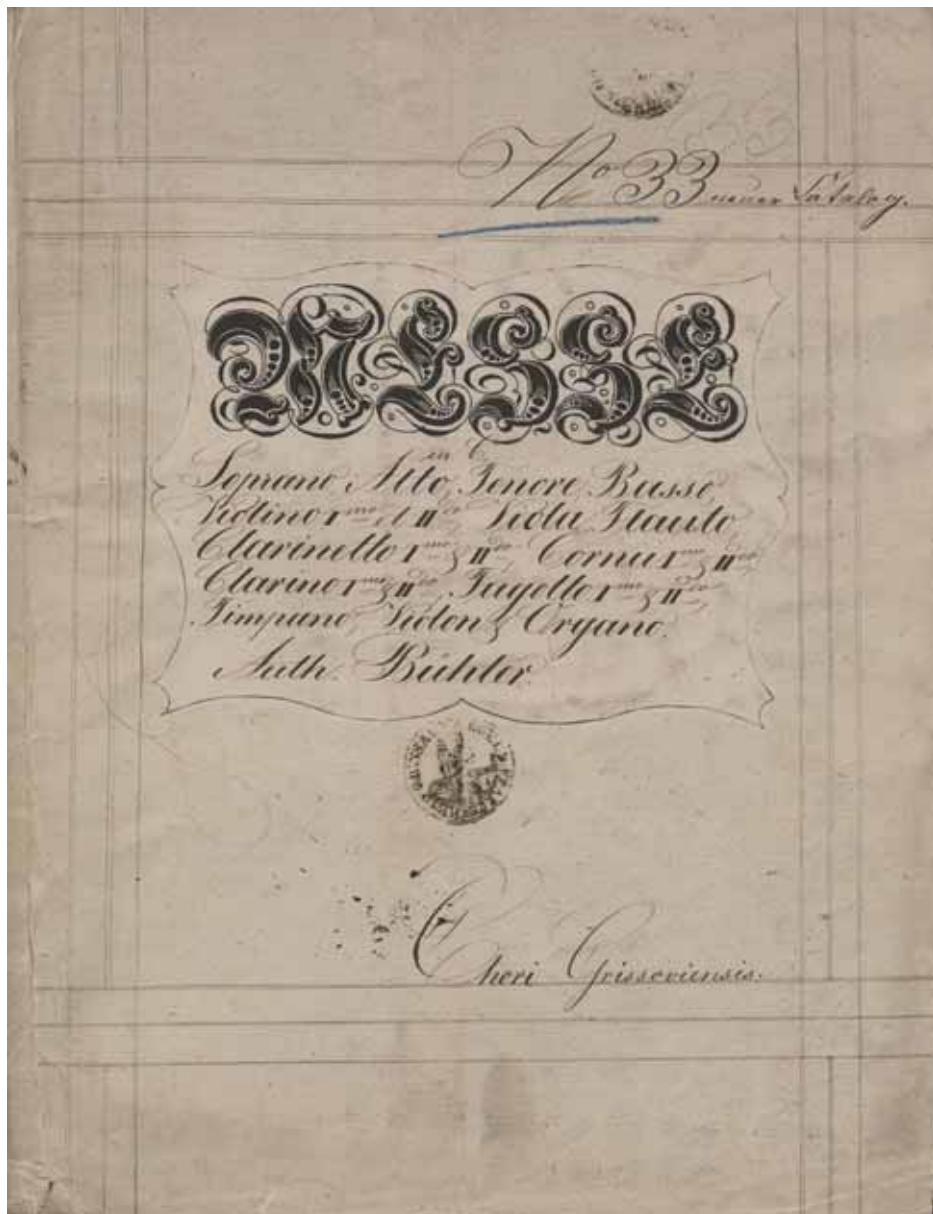 No 33 neuer Catalog.
MESSE
in C
Soprano, Alto, Tenore, Basso,
Violino Imo et IIdo Viola, Flauto,
Clarinetto Imo & IIdo, Cornu Imo & IIdo,
Clarino Imo & IIdo, Fagotto Imo & IIdo,
Timpano, Violon & Organo.
Auth. Bühler.
Chori Grissoviensis.